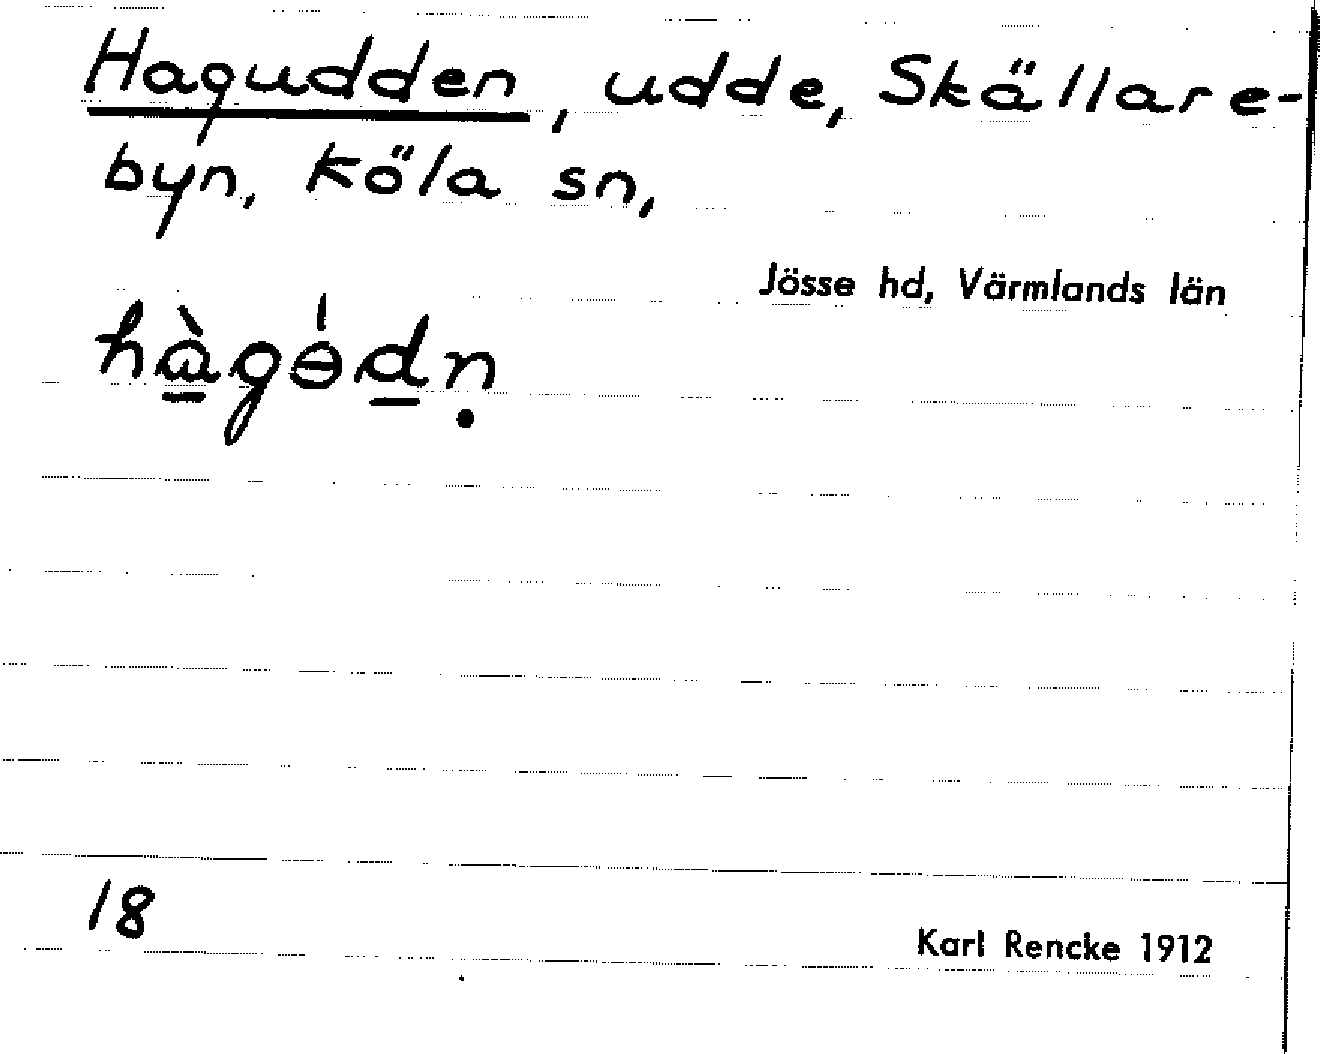 Hagudden, udde, Skällare-
byn, Köla sn,
Jösse hd, Värmlands län
hàgɵ́dṇ
18
Karl Rencke 1912